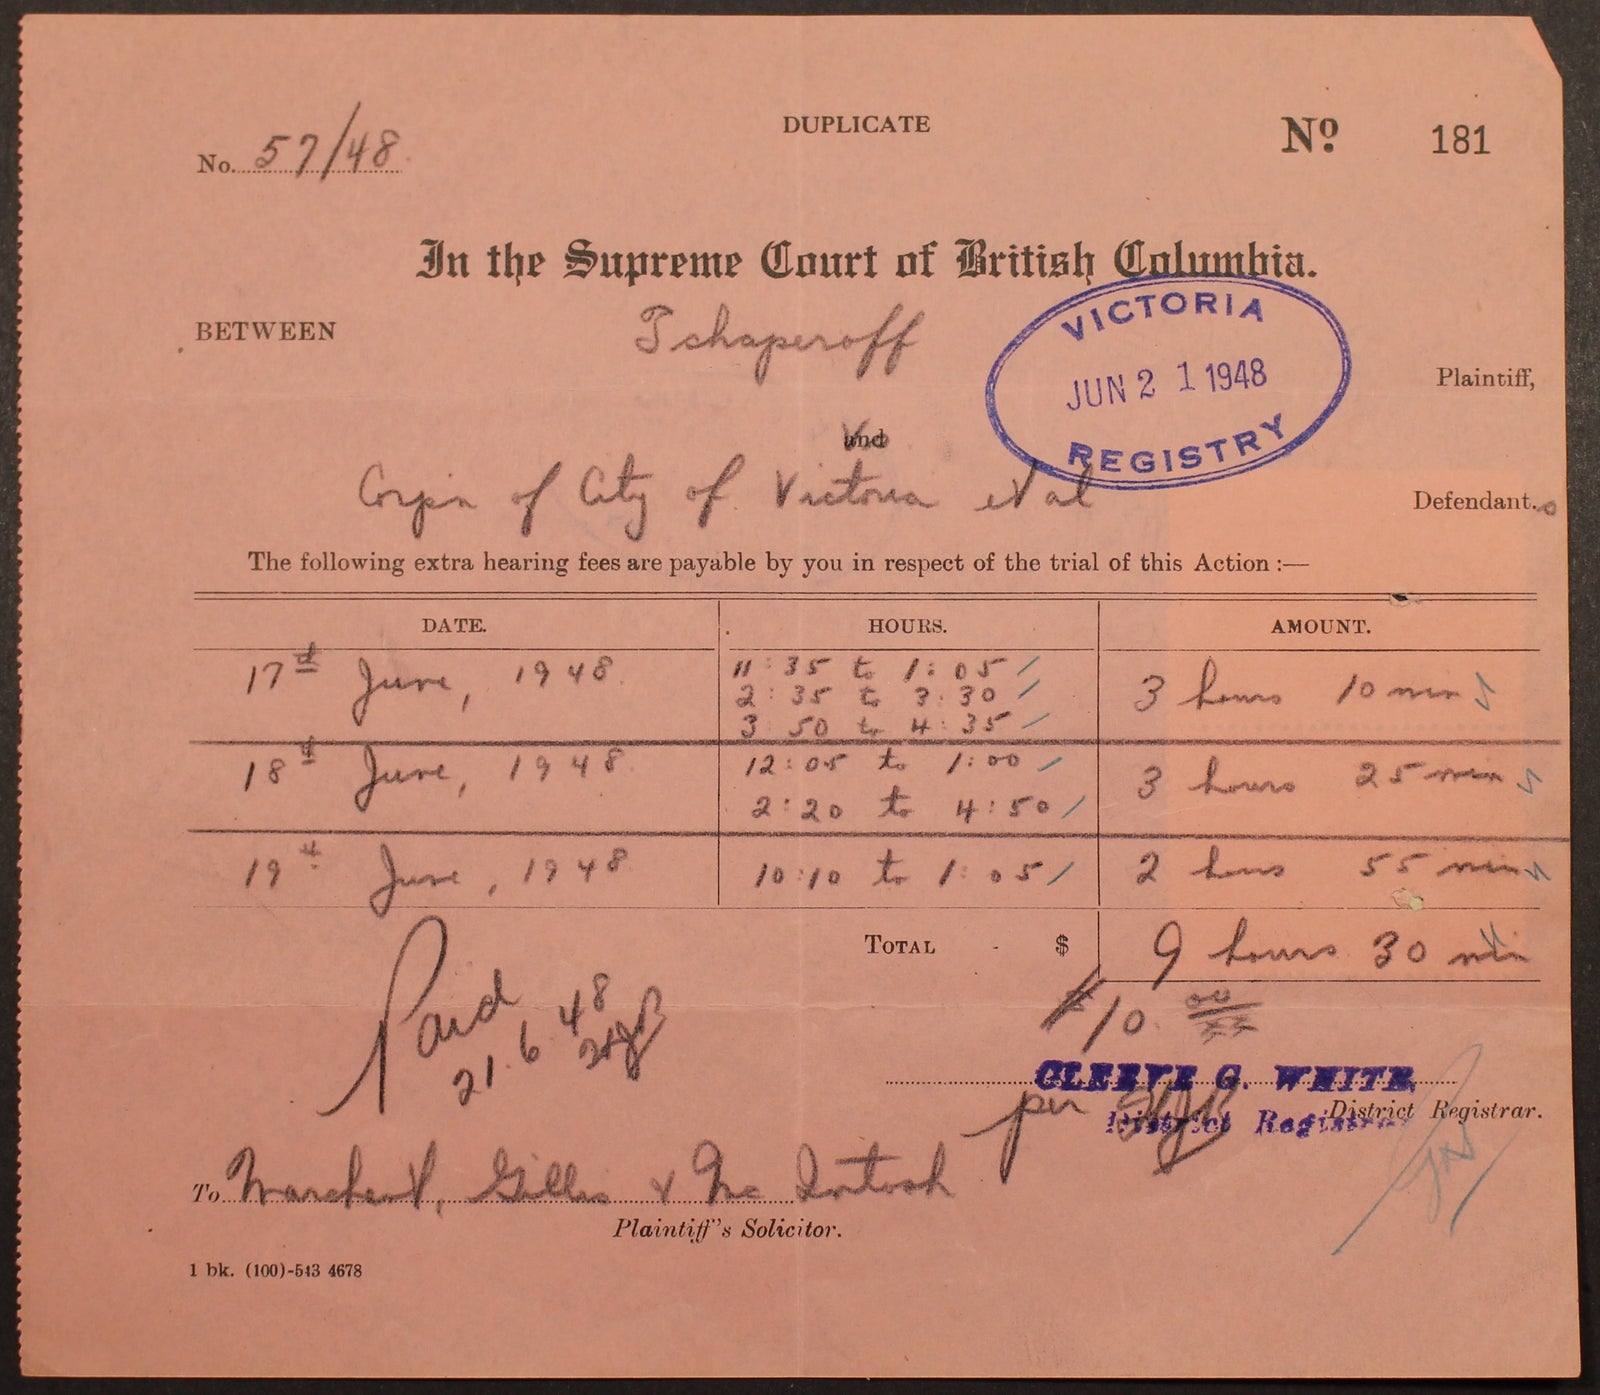 DUPLICATE
No. 57/48
Nº 181
In the Supreme Court of British Columbia.
BETWEEN
Tschaperoff
Plaintiff,
VICTORIA
JUN 21 1948
REGISTRY
and
Corpn of City of Victoria et al
Defendant.s
The following extra hearing fees are payable by you in respect of the trial of this Action :—
DATE. HOURS. AMOUNT.
17th June, 1948. 11:35 to 1:05 3 hours 10 min
2:35 to 3:30
3 50 to 4:35
18th June, 1948. 12:05 to 1:00 3 hours 25 min
2:20 to 4:50
19th June, 1948 10:10 to 1:05 2 hours 55 min
TOTAL - $ 9 hours 30 min
$10.00
Paid
21.6.48
CLEEVE G. WHITE,
per
District Registrar
District Registrar.
To Marchant, Gillis & McIntosh
Plaintiff's Solicitor.
1 bk. (100)-543 4678